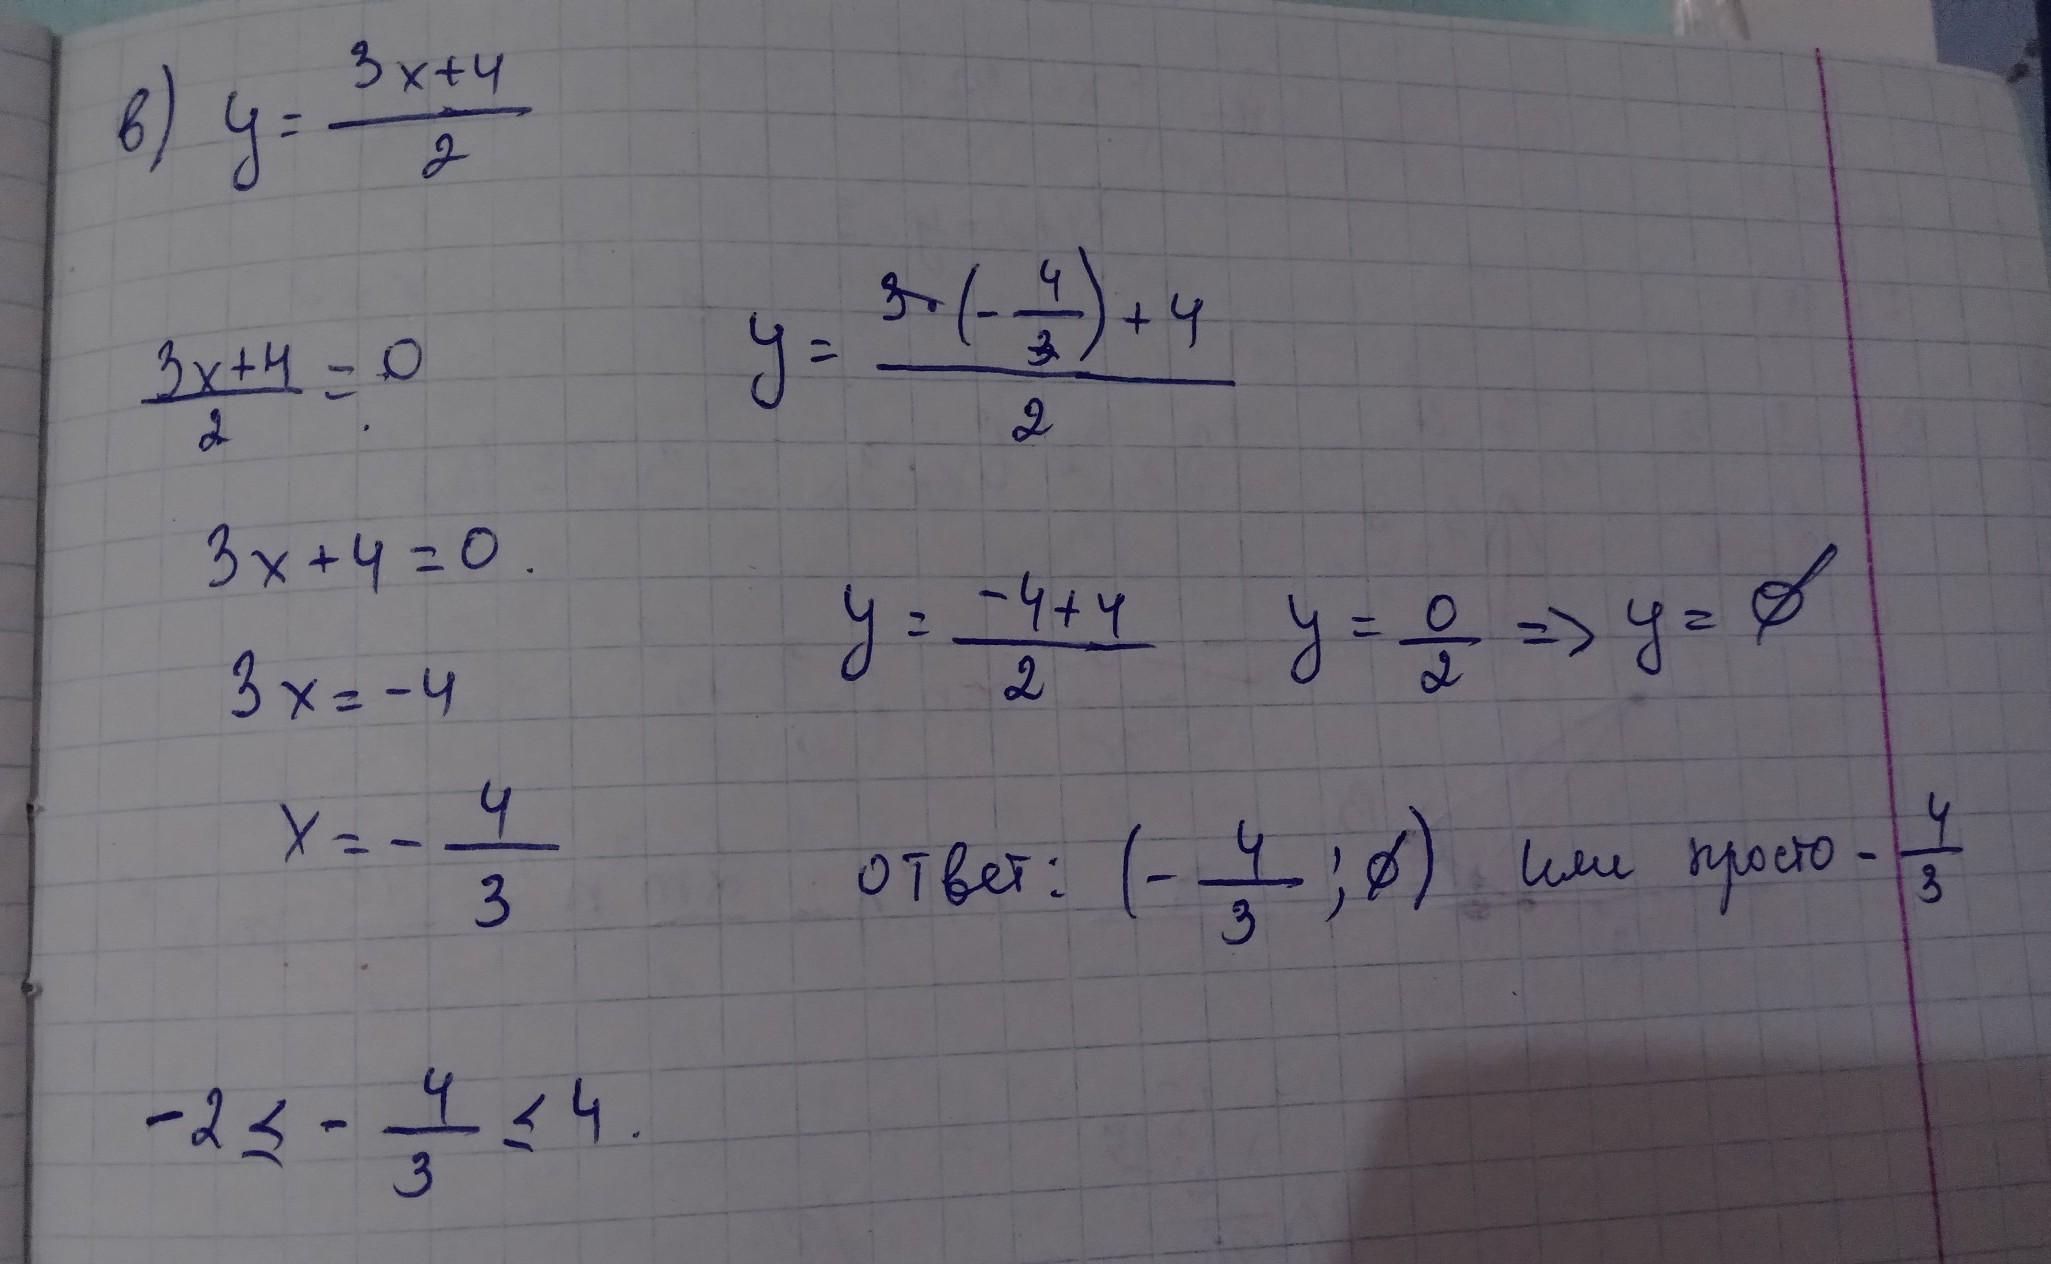 в) y = (3x+4)/2
(3x+4)/2 = 0
3x+4=0.
3x=-4
x=-4/3
-2 ≤ -4/3 ≤ 4.
y = (3·(-4/3)+4)/2
y = (-4+4)/2 y = 0/2 => y = ∅
ответ: (-4/3; ∅) или просто -4/3